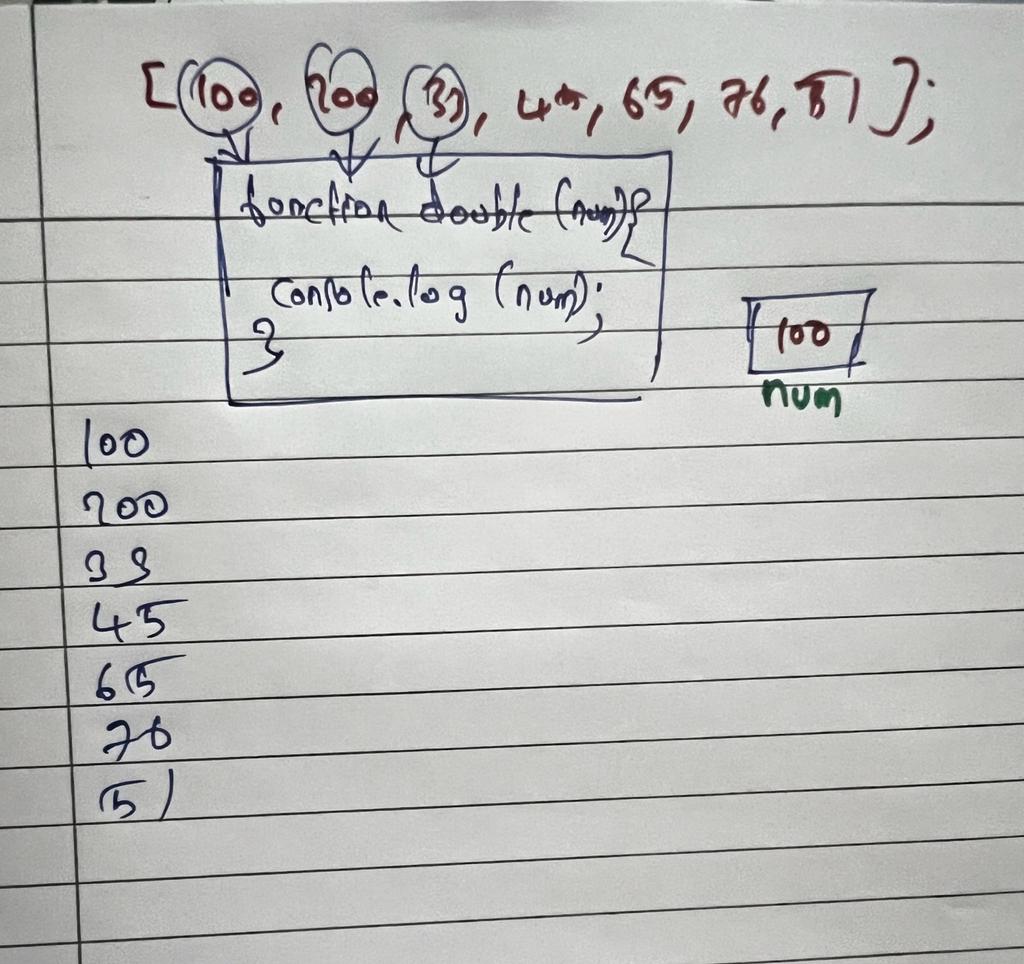 [100, 200, 33, 45, 65, 76, 51];
function double (num){
console.log (num);
}
100
num
100
200
33
45
65
76
51